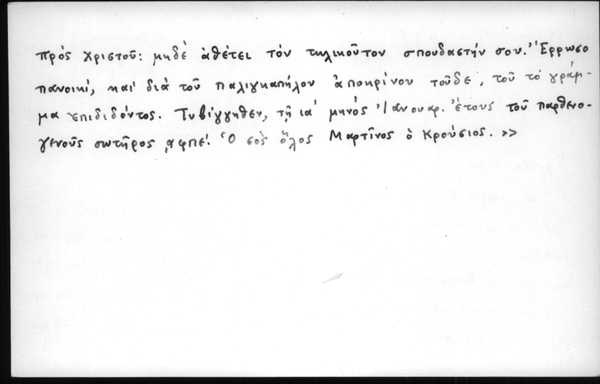 πρός Χριστοῦ: μηδέ ἀθέτει τόν τηλικοῦτον σπουδαστήν σου. Ἔρρωσο
πανοικί, καί διά τοῦ παλιγκαπήλου ἀποκρίνου τοῦδε, τοῦ τό γράμ-
μα ἐπιδιδόντος. Τυβίγγηθεν, τῇ ια΄ μηνός Ἰανουαρ. ἔτους τοῦ παρθενο-
γενοῦς σωτῆρος ͵αφπε΄. Ὁ σός ὅλος Μαρτῖνος ὁ Κρούσιος. >>